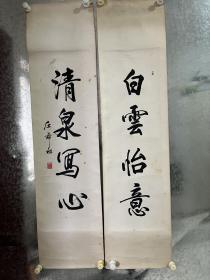 白雲怡意
清泉寫心